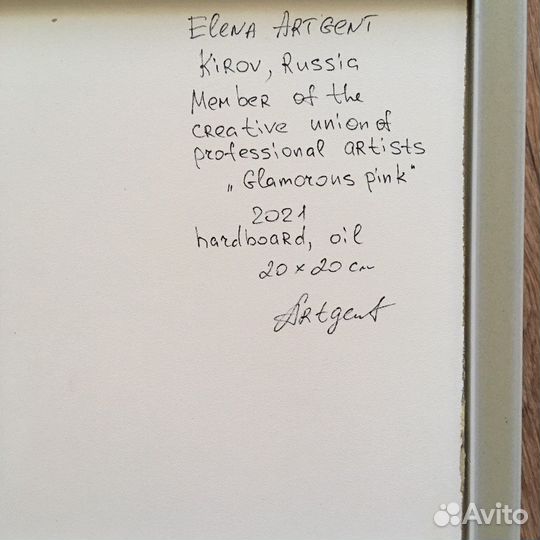 Elena Artgent
Kirov, Russia
Member of the
creative union of
professional artists
„Glamorous pink"
2021
hardboard, oil
20 x 20 cm
Artgent
Avito